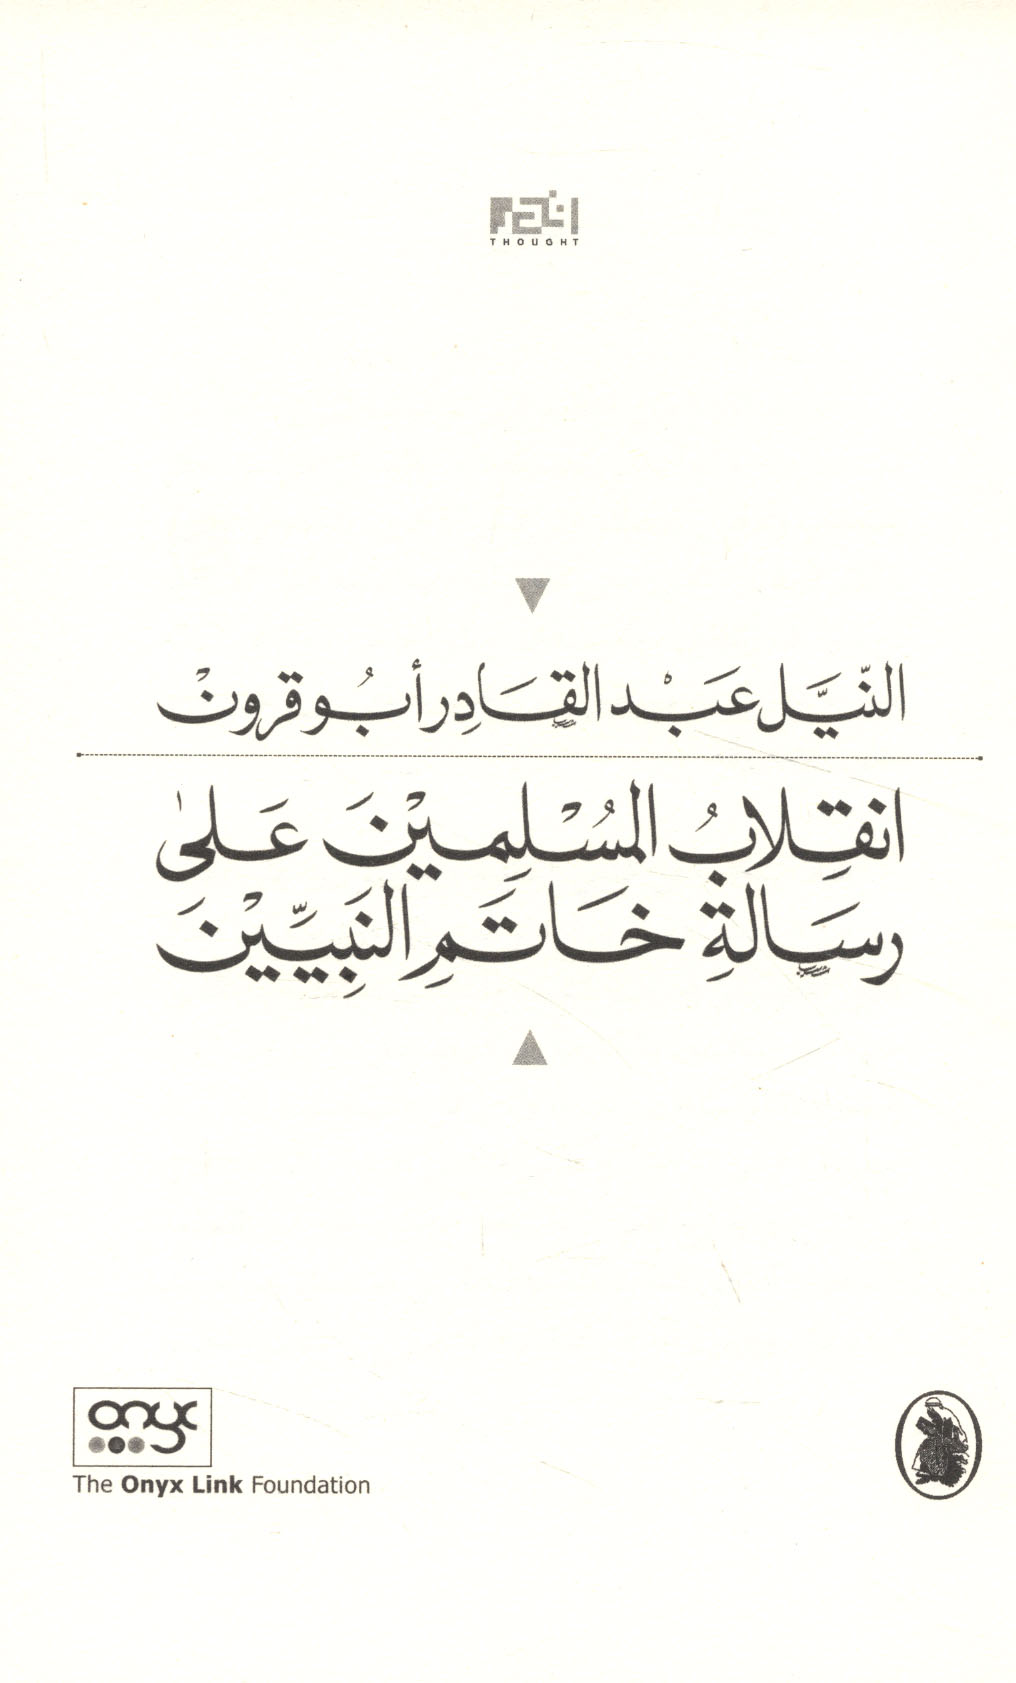 THOUGHT
النّيَّل عَبْد القَادِر أبُو قرونْ
انقِلابُ المُسْلِمِيْنَ عَلىٰ
رسَالةِ خَاتَمِ النَبِيِّيْنَ
onyx
The Onyx Link Foundation